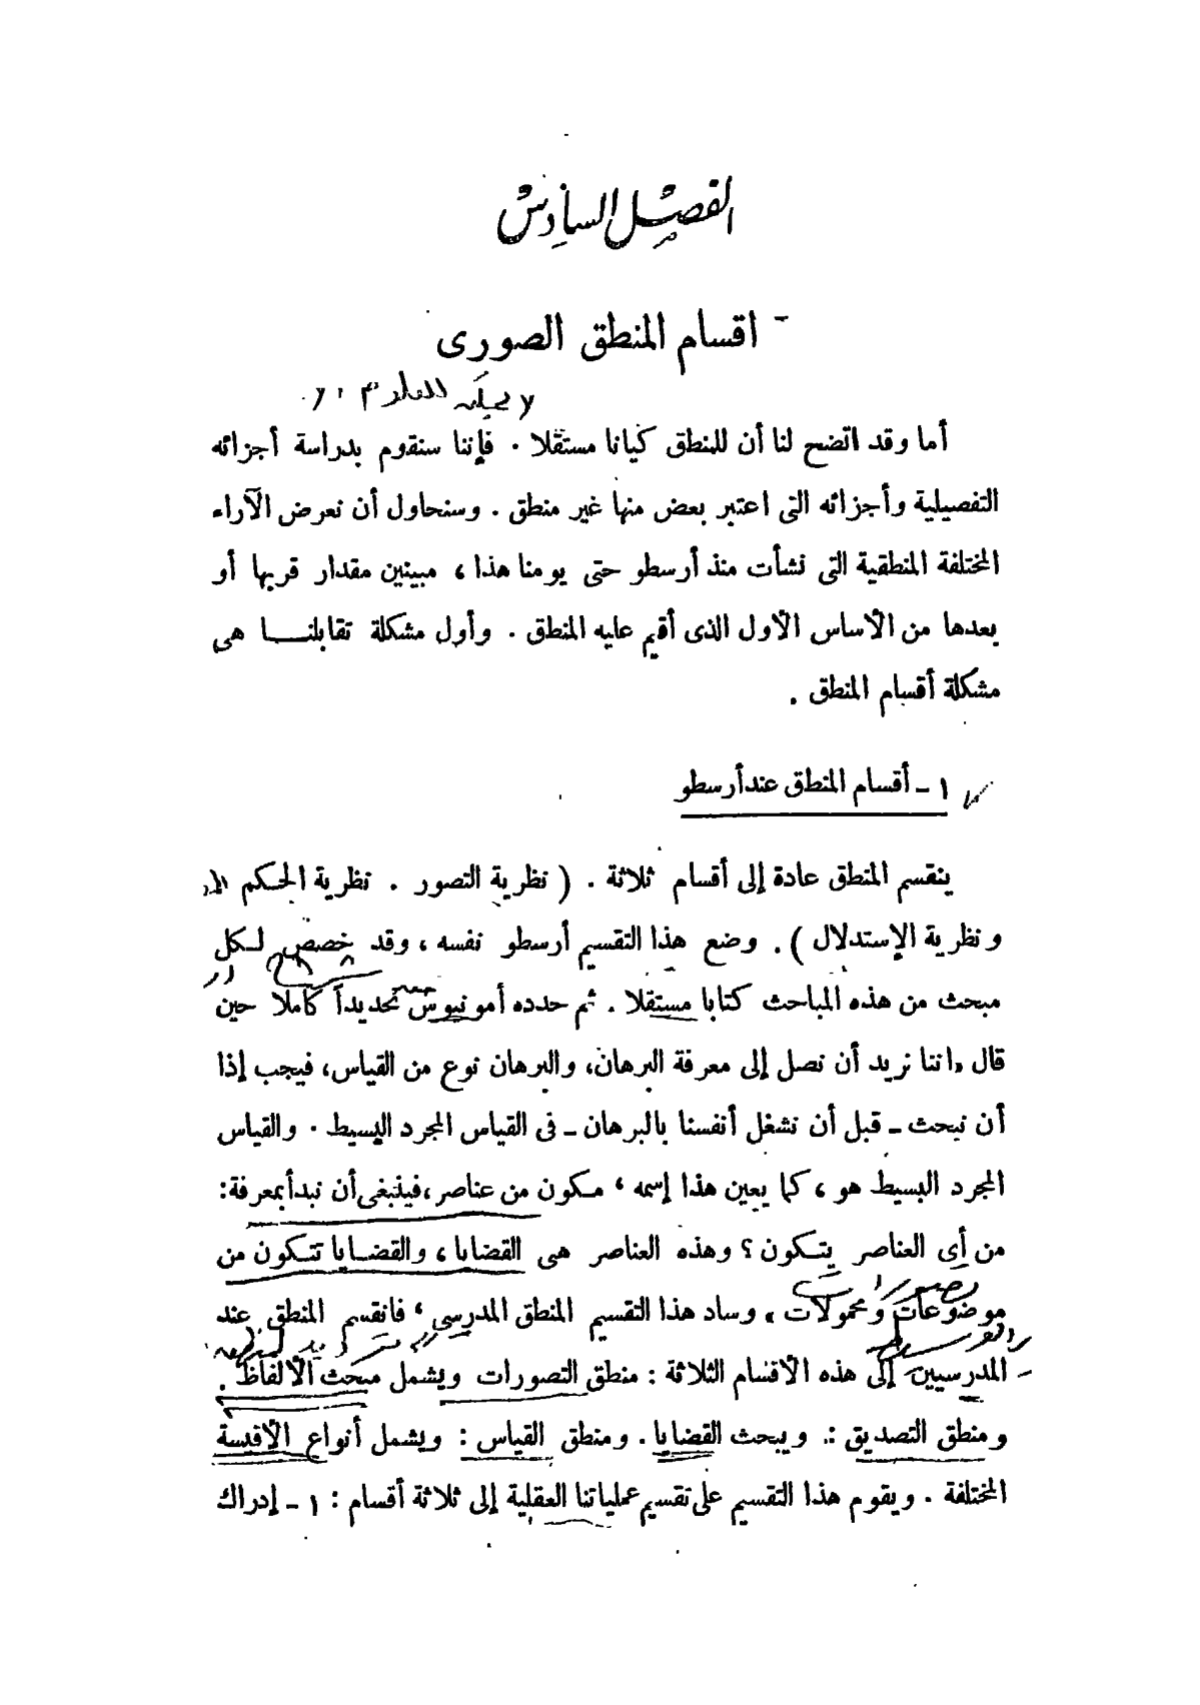 الفصل السادس
اقسام المنطق الصورى
أما وقد اتضح لنا أن للمنطق كيانا مستقلا . فإننا سنقوم بدراسة أجزائه
التفصيلية وأجزائه التى اعتبر بعض منها غير منطق . وسنحاول أن نعرض الآراء
المختلفة المنطقية التى نشأت منذ أرسطو حتى يومنا هذا ، مبينين مقدار قربها أو
بعدها من الأساس الأول الذى أقيم عليه المنطق . وأول مشكلة تقابلنا هى
مشكلة أقسام المنطق .
١ - أقسام المنطق عند أرسطو
ينقسم المنطق عادة إلى أقسام ثلاثة . ( نظرية التصور . نظرية الحكم
ونظرية الإستدلال ) . وضع هذا التقسيم أرسطو نفسه ، وقد خصص لكل
مبحث من هذه المباحث كتابا مستقلا . ثم حدده أمونيوس تحديداً كاملا حين
قال «اننا نريد أن نصل إلى معرفة البرهان، والبرهان نوع من القياس، فيجب إذا
أن نبحث - قبل أن نشغل أنفسنا بالبرهان - فى القياس المجرد البسيط . والقياس
المجرد البسيط هو ، كما يعين هذا إسمه ، مكون من عناصر ، فينبغى أن نبدأ بمعرفة :
من أى العناصر يتكون ؟ وهذه العناصر هى القضايا ، والقضايا تتكون من
موضوعات ومحمولات ، وساد هذا التقسيم المنطق المدرسى ، فانقسم المنطق عند
المدرسيين إلى هذه الأقسام الثلاثة : منطق التصورات ويشمل مبحث الألفاظ .
ومنطق التصديق : ويبحث القضايا . ومنطق القياس : ويشمل أنواع الأقيسة
المختلفة . ويقوم هذا التقسيم على تقسيم عملياتنا العقلية إلى ثلاثة أقسام : ١ - إدراك